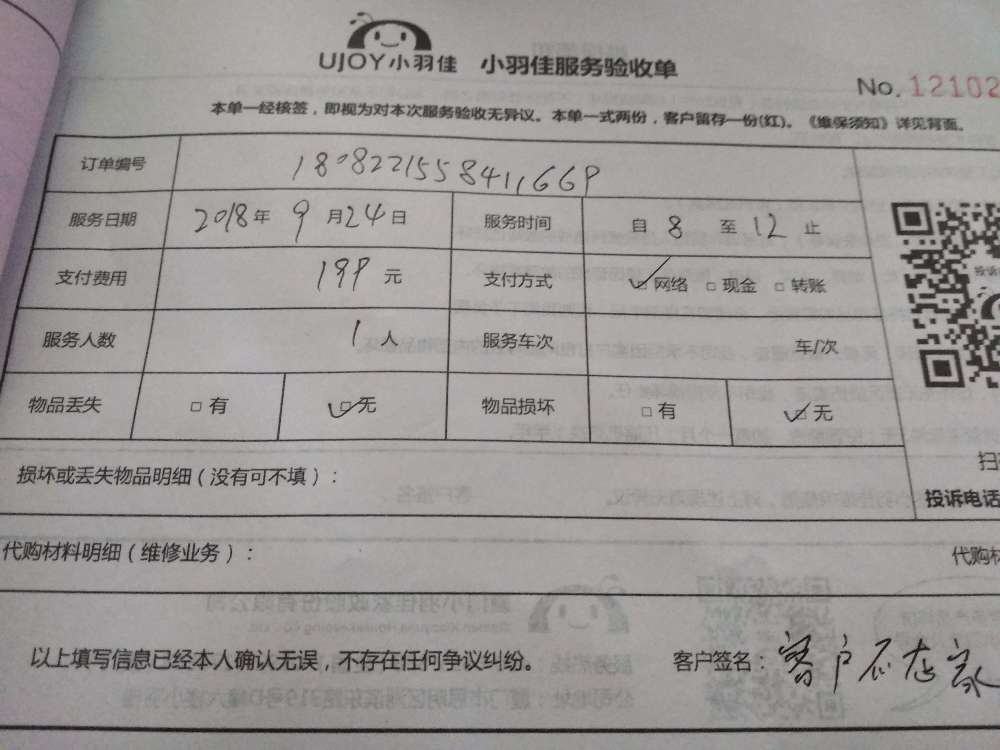 UJOY小羽佳 小羽佳服务验收单
No. 12102
本单一经核签，即视为对本次服务验收无异议。本单一式两份，客户留存一份(红)。《维保须知》详见背面。
订单编号 1808221558411669
服务日期 2018年 9月24日 服务时间 自 8 至 12 止
支付费用 199 元 支付方式 ☑网络 □现金 □转账
服务人数 1 人 服务车次 车/次
物品丢失 □有 ☑无 物品损坏 □有 ☑无
损坏或丢失物品明细（没有可不填）：
扫
投诉电话
代购材料明细（维修业务）： 代购材
以上填写信息已经本人确认无误，不存在任何争议纠纷。 客户签名：客户不在家